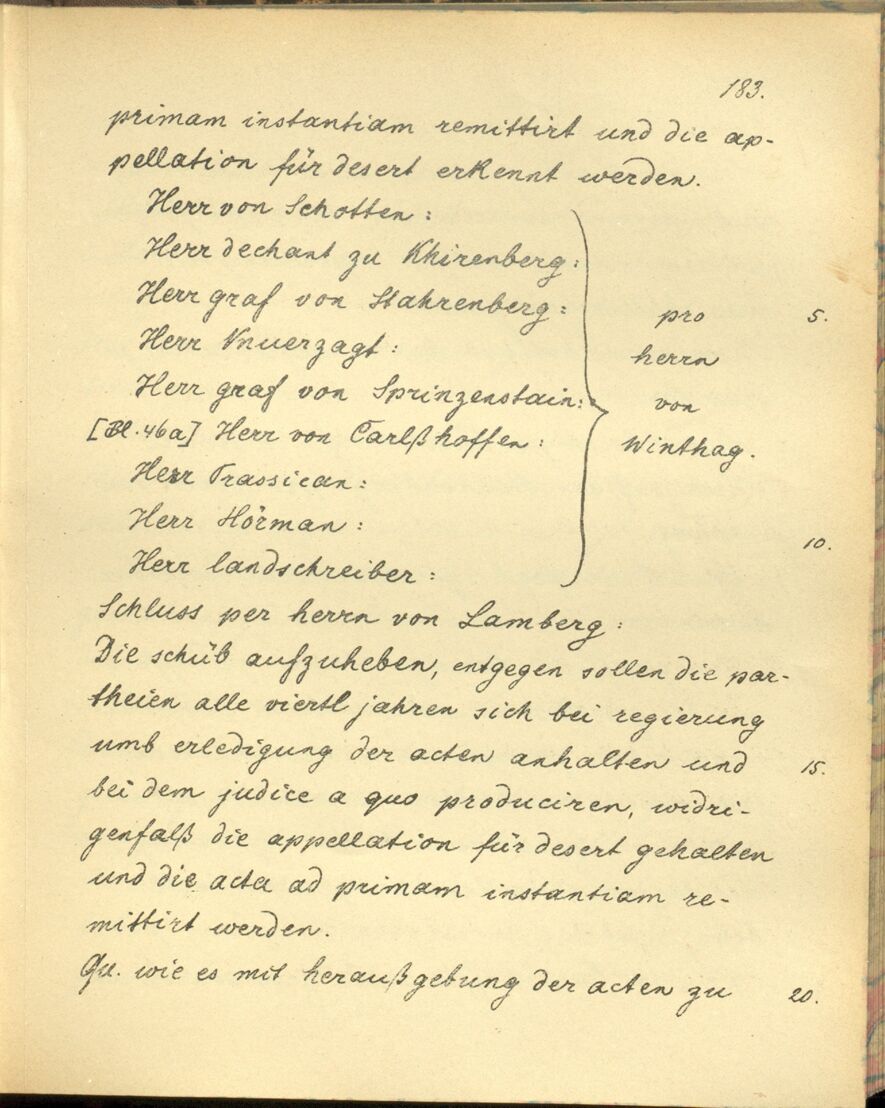 183.
primam instantiam remittirt und die ap-
pellation für desert erkennt werden.
Herr von Schotten:
Herr dechant zu Khirenberg:
Herr graf von Stahrenberg: pro 5.
Herr Vnuerzagt: herrn
Herr graf von Sprinzenstain: von
[Bl. 46a] Herr von Carlßhoffen: Winthag.
Herr Trassican:
Herr Hörman: 10.
Herr landschreiber:
Schluss per herrn von Lamberg:
Die schüb aufzuheben, entgegen sollen die par-
theien alle viertl jahren sich bei regierung
umb erledigung der acten anhalten und 15.
bei dem judice a quo produciren, widri-
genfalß die appellation für desert gehalten
und die acta ad primam instantiam re-
mittirt werden.
Qu. wie es mit heraußgebung der acten zu 20.